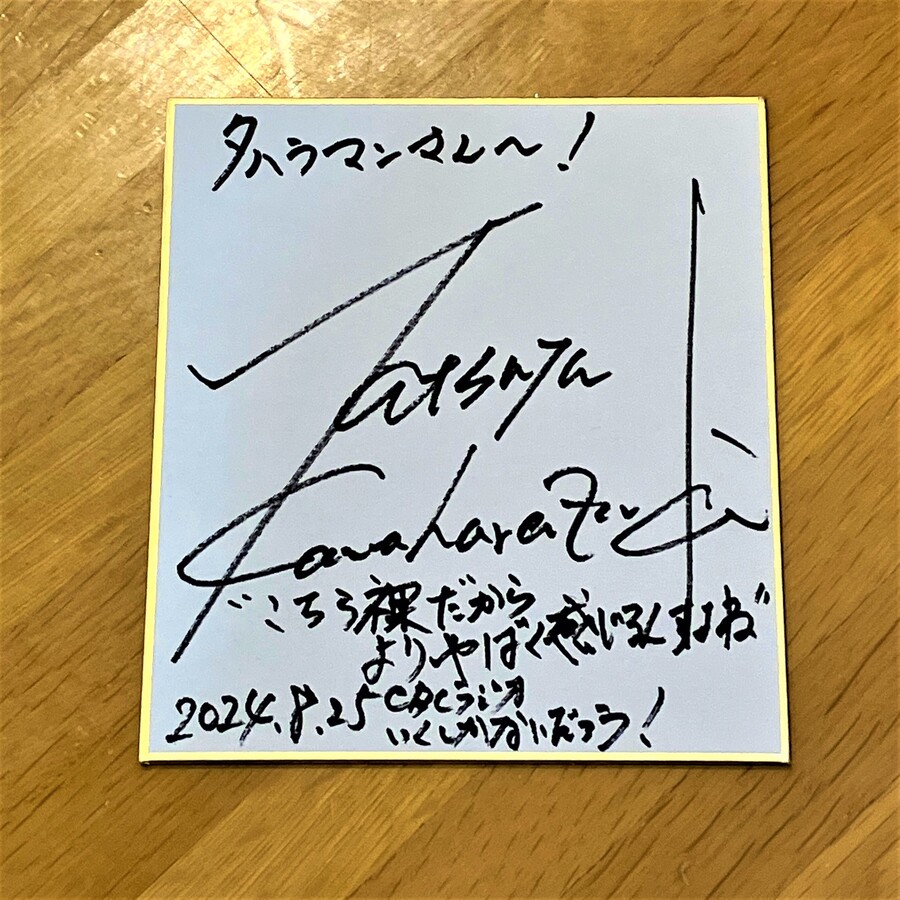 タハラマンさん〜!
Tatsuya
Kawaharazuki
"こちら裸だから
よりやばく感じますね"
2024.8.25 CBCラジオ
いくしかないだろう!